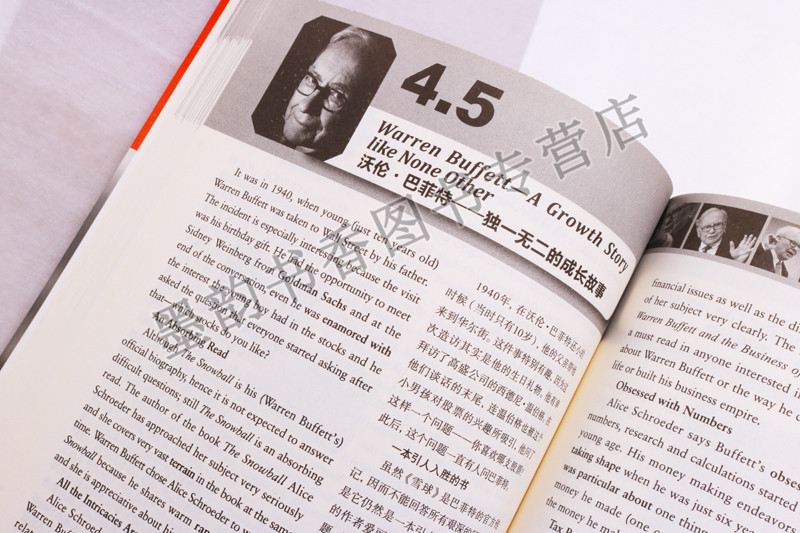 4.5
Warren Buffett— A Growth Story
like None Other
沃伦·巴菲特——独一无二的成长故事
It was in 1940, when young (just ten years old)
Warren Buffett was taken to Wall Street by his father.
The incident is especially interesting because the visit
was his birthday gift. He had the opportunity to meet
Sidney Weinberg from Goldman Sachs and at the
end of the conversation, even he was enamored with
the interest the young boy had in the stocks and he
asked the question that everyone started asking after
that—what stocks do you like?
An Absorbing Read
Although The Snowball is his (Warren Buffett's)
official biography, hence it is not expected to answer
difficult questions; still The Snowball is an absorbing
read. The author of the book The Snowball Alice
Schroeder has approached her subject very seriously
and she covers very vast terrain in the book at the same
time. Warren Buffett chose Alice Schroeder to
Snowball because he shares warm
and she is appreciative about his
All the Intricacies
Alice
Warren Buffett
1940年,在沃伦·巴菲特还小的
时候(当时只有10岁),他的父亲带他
来到华尔街。这件事特别有趣,因为这
次造访其实是他的生日礼物。他有
拜访了高盛公司的西德尼·温伯格,在
他们谈话的末尾,连温伯格也被这个
小男孩对股票的兴趣所吸引,他问了
这样一个问题——你喜欢哪支股票?
此后,这个问题一直有人问巴菲特。
一本引人入胜的书
虽然《雪球》是巴菲特的官方传
记,因而不能回答所有艰深的问
是它仍然是一本引
的作者爱
financial issues as well as the
of her subject very clearly. The
Warren Buffett and the Business of
a must read in anyone interested
about Warren Buffett or the way he
life or built his business empire.
Obsessed with Numbers
Alice Schroeder says Buffett's
numbers, research and calculations started
young age. His money making endeavors
taking shape when he was just six
was particular about one thing
money he made (one
the money he made
Tax
墨韵书香图书专营店